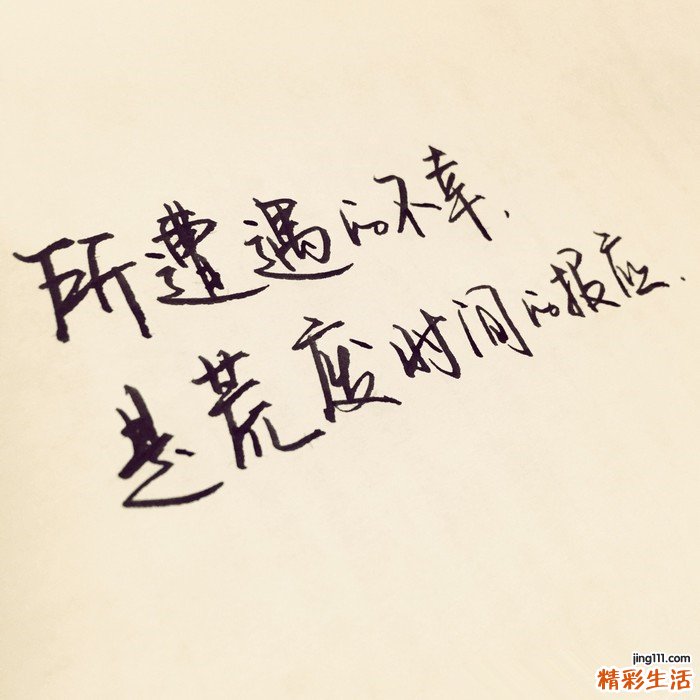 所遭遇的不幸.
是荒度时间的报应.
jing111.com
精彩生活